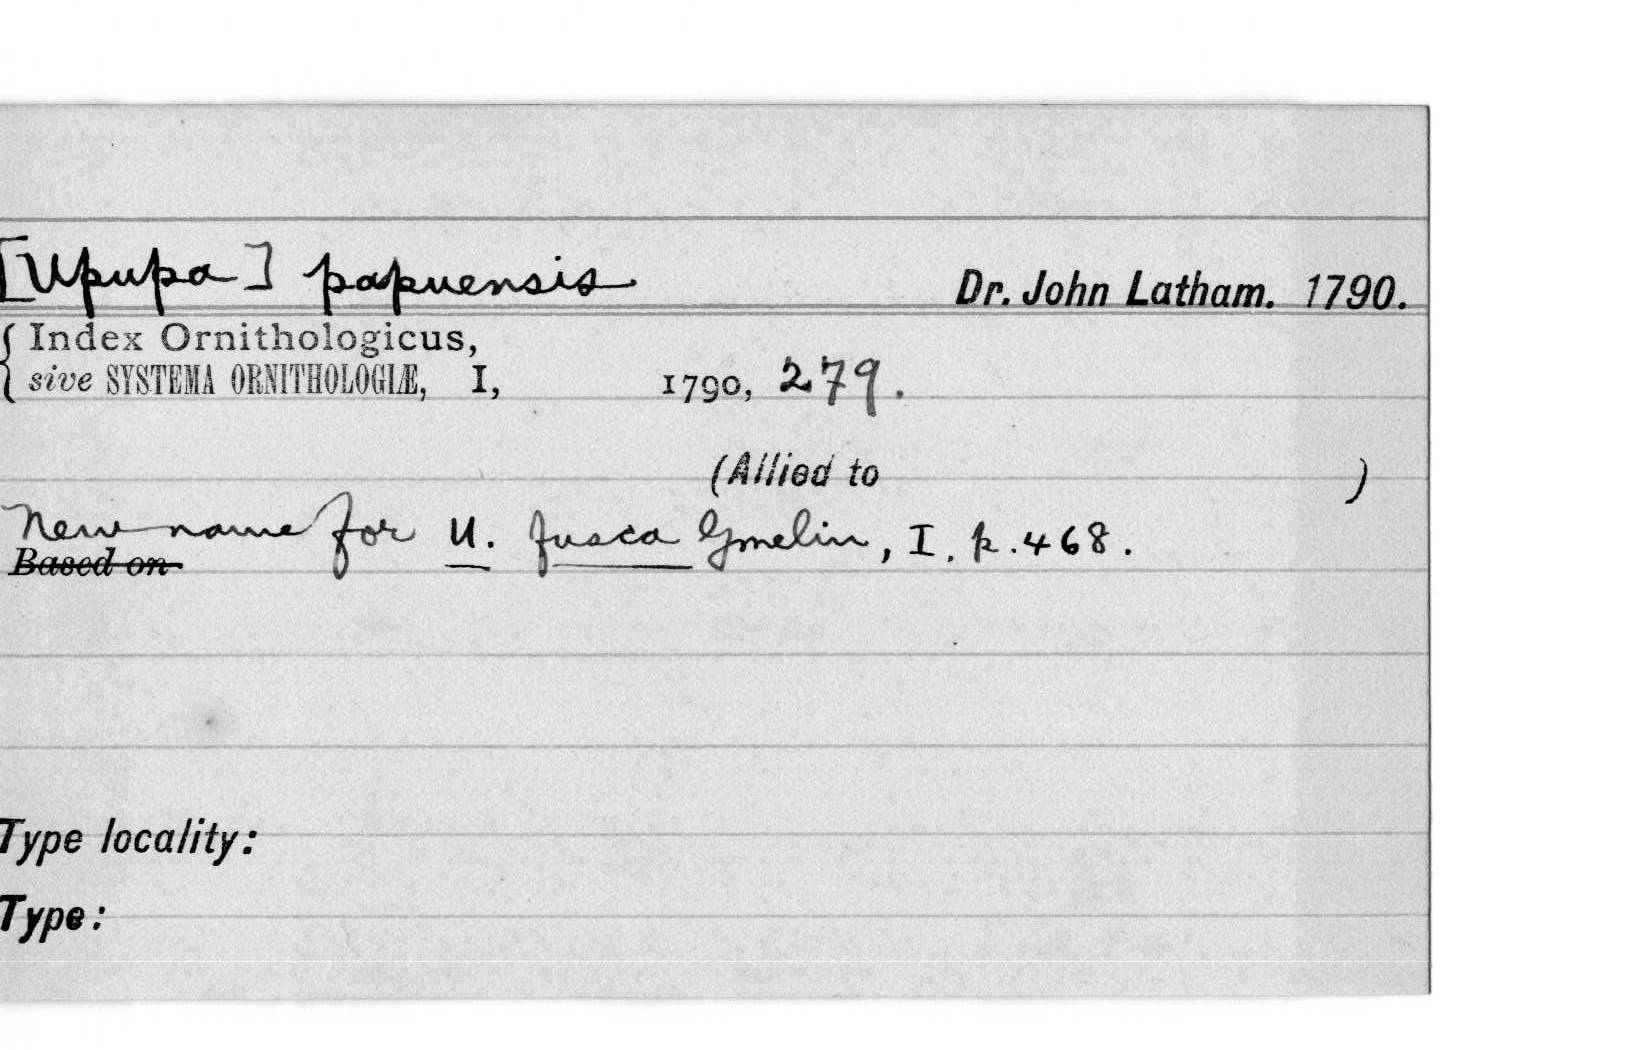 [Upupa] papuensis Dr. John Latham. 1790.
{ Index Ornithologicus,
sive SYSTEMA ORNITHOLOGIÆ, I, 1790, 279.
(Allied to )
New name for U. fusca Gmelin, I. p. 468.
Based on
Type locality:
Type: